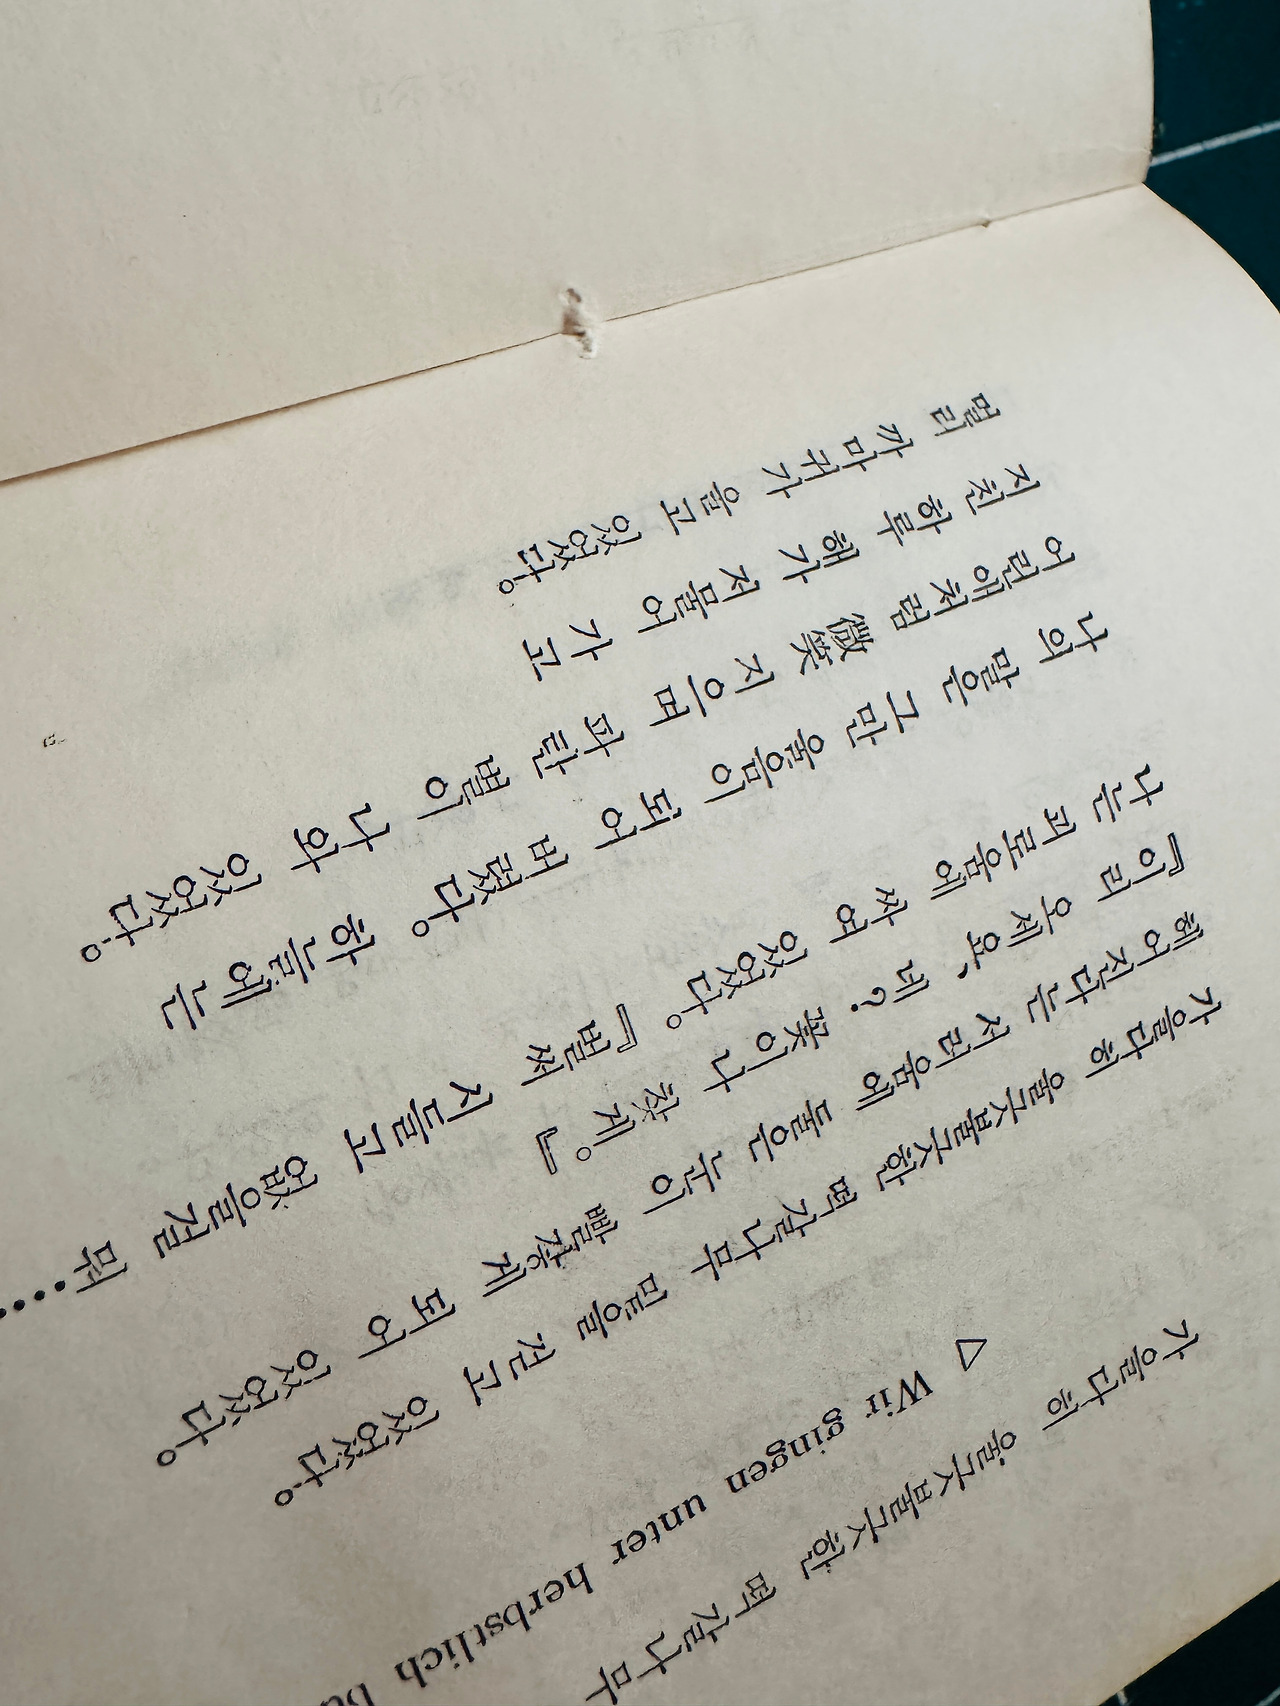 가을다히 울긋불긋한 떡갈나무
▷ Wir gingen unter herbstlich
가을다히 울긋불긋한 떡갈나무 밑을 걷고 있었다。
헤어진다는 서러움에 둘은 낯이 빨갛게 되어 있었다。
『이리 오세요, 네?. 꽃이나 찾게。』
나는 괴로움에 싸여 있었다。『벌써 시들고 없을걸 뭐……
나의 말은 그만 울음이 되어 버렸다。 하늘에는
어린애처럼 微笑 지으며 파란 별이 나와 있었다。
지친 하루 해가 저물어 가고
멀리 까마귀가 울고 있었다。